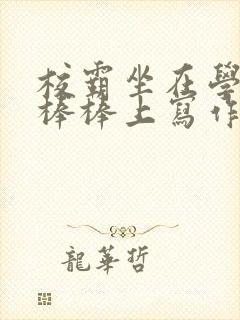 校霸坐在學
棒棒上寫作
龍華哲